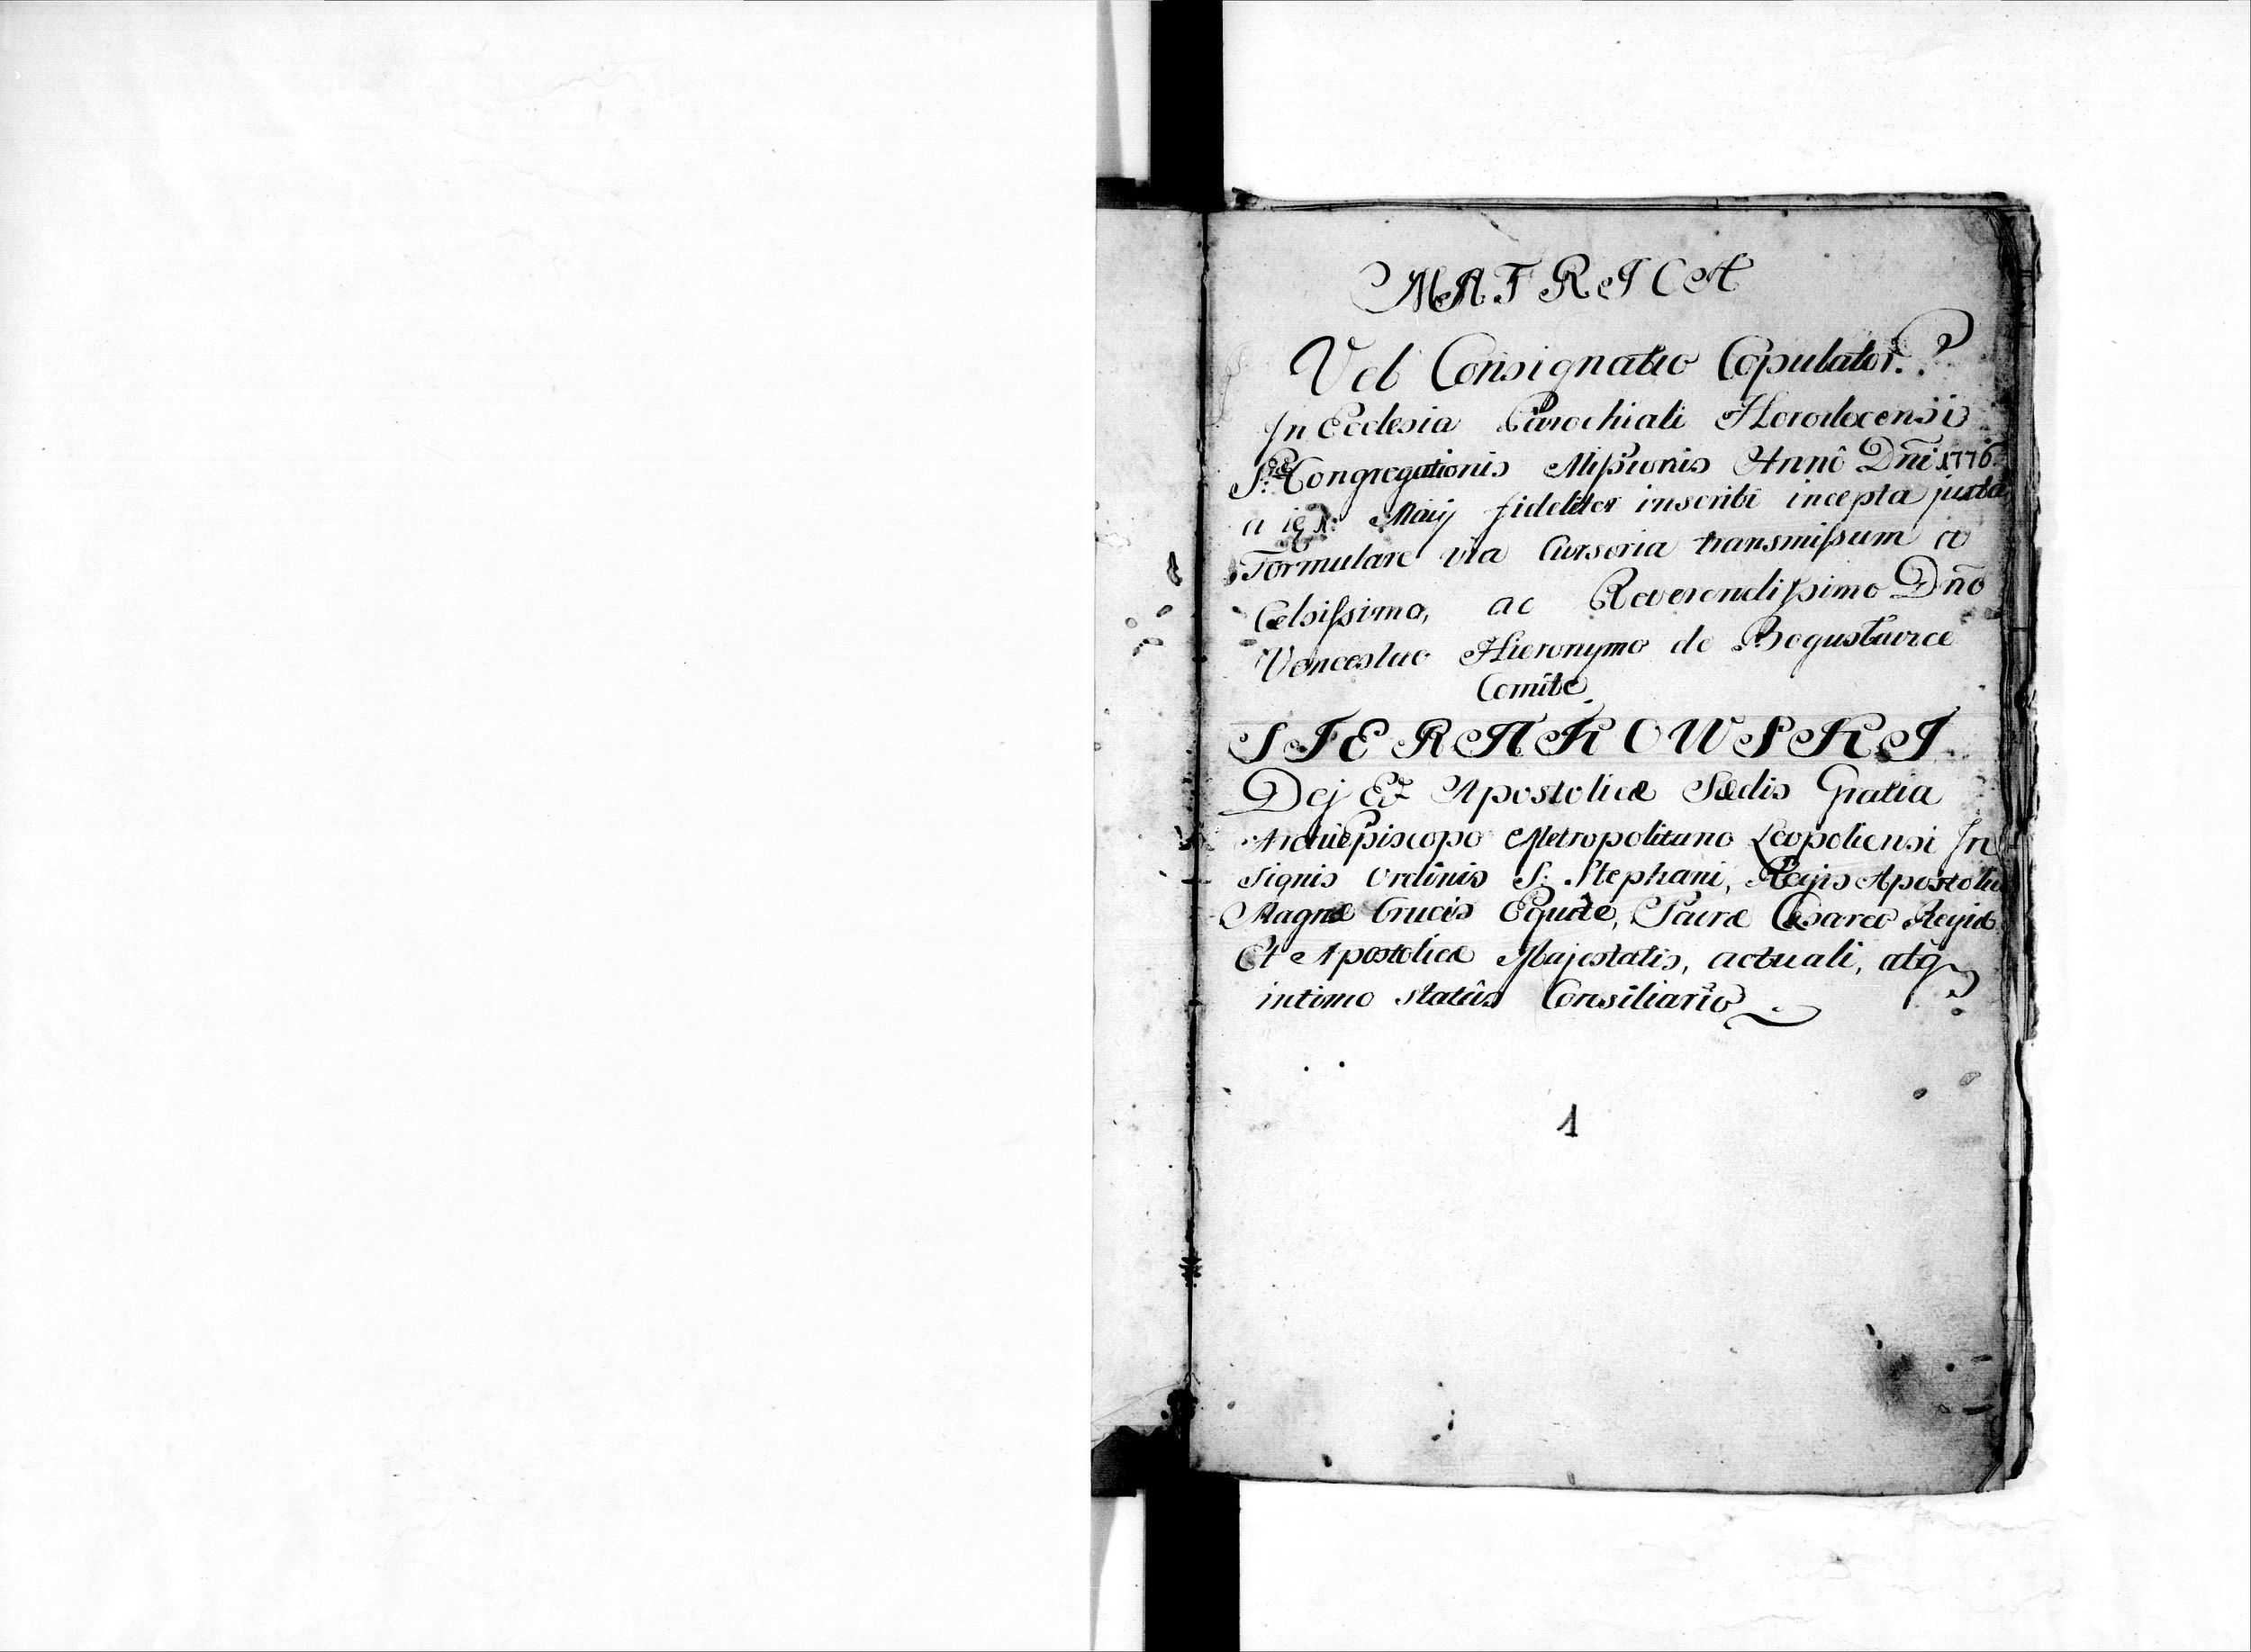 MATRICA
Vel Consignatio Copulator.
In Ecclesia Parochiali Horodecensi
Congregationis Mißionis Annô Dñi 1776
a Maij fideliter inscribi incepta juxta
Formulare via Cursoria transmißum a
Celsißimo, ac Reverendißimo Dño
Venceslao Hieronymo de Bogusławice
Comite
SIERAKOWSKI
Dej Et Apostolicæ Sædis Gratia
Archiepiscopo Metropolitano Leopoliensi In
signis Ordinis S: Stephani, Regis Apostolici
Magnæ Crucis Equite, Sacræ Cæsareo Regiæ
Et Apostolicæ Majestatis, actuali, atq
intimo statûs Consiliario
1